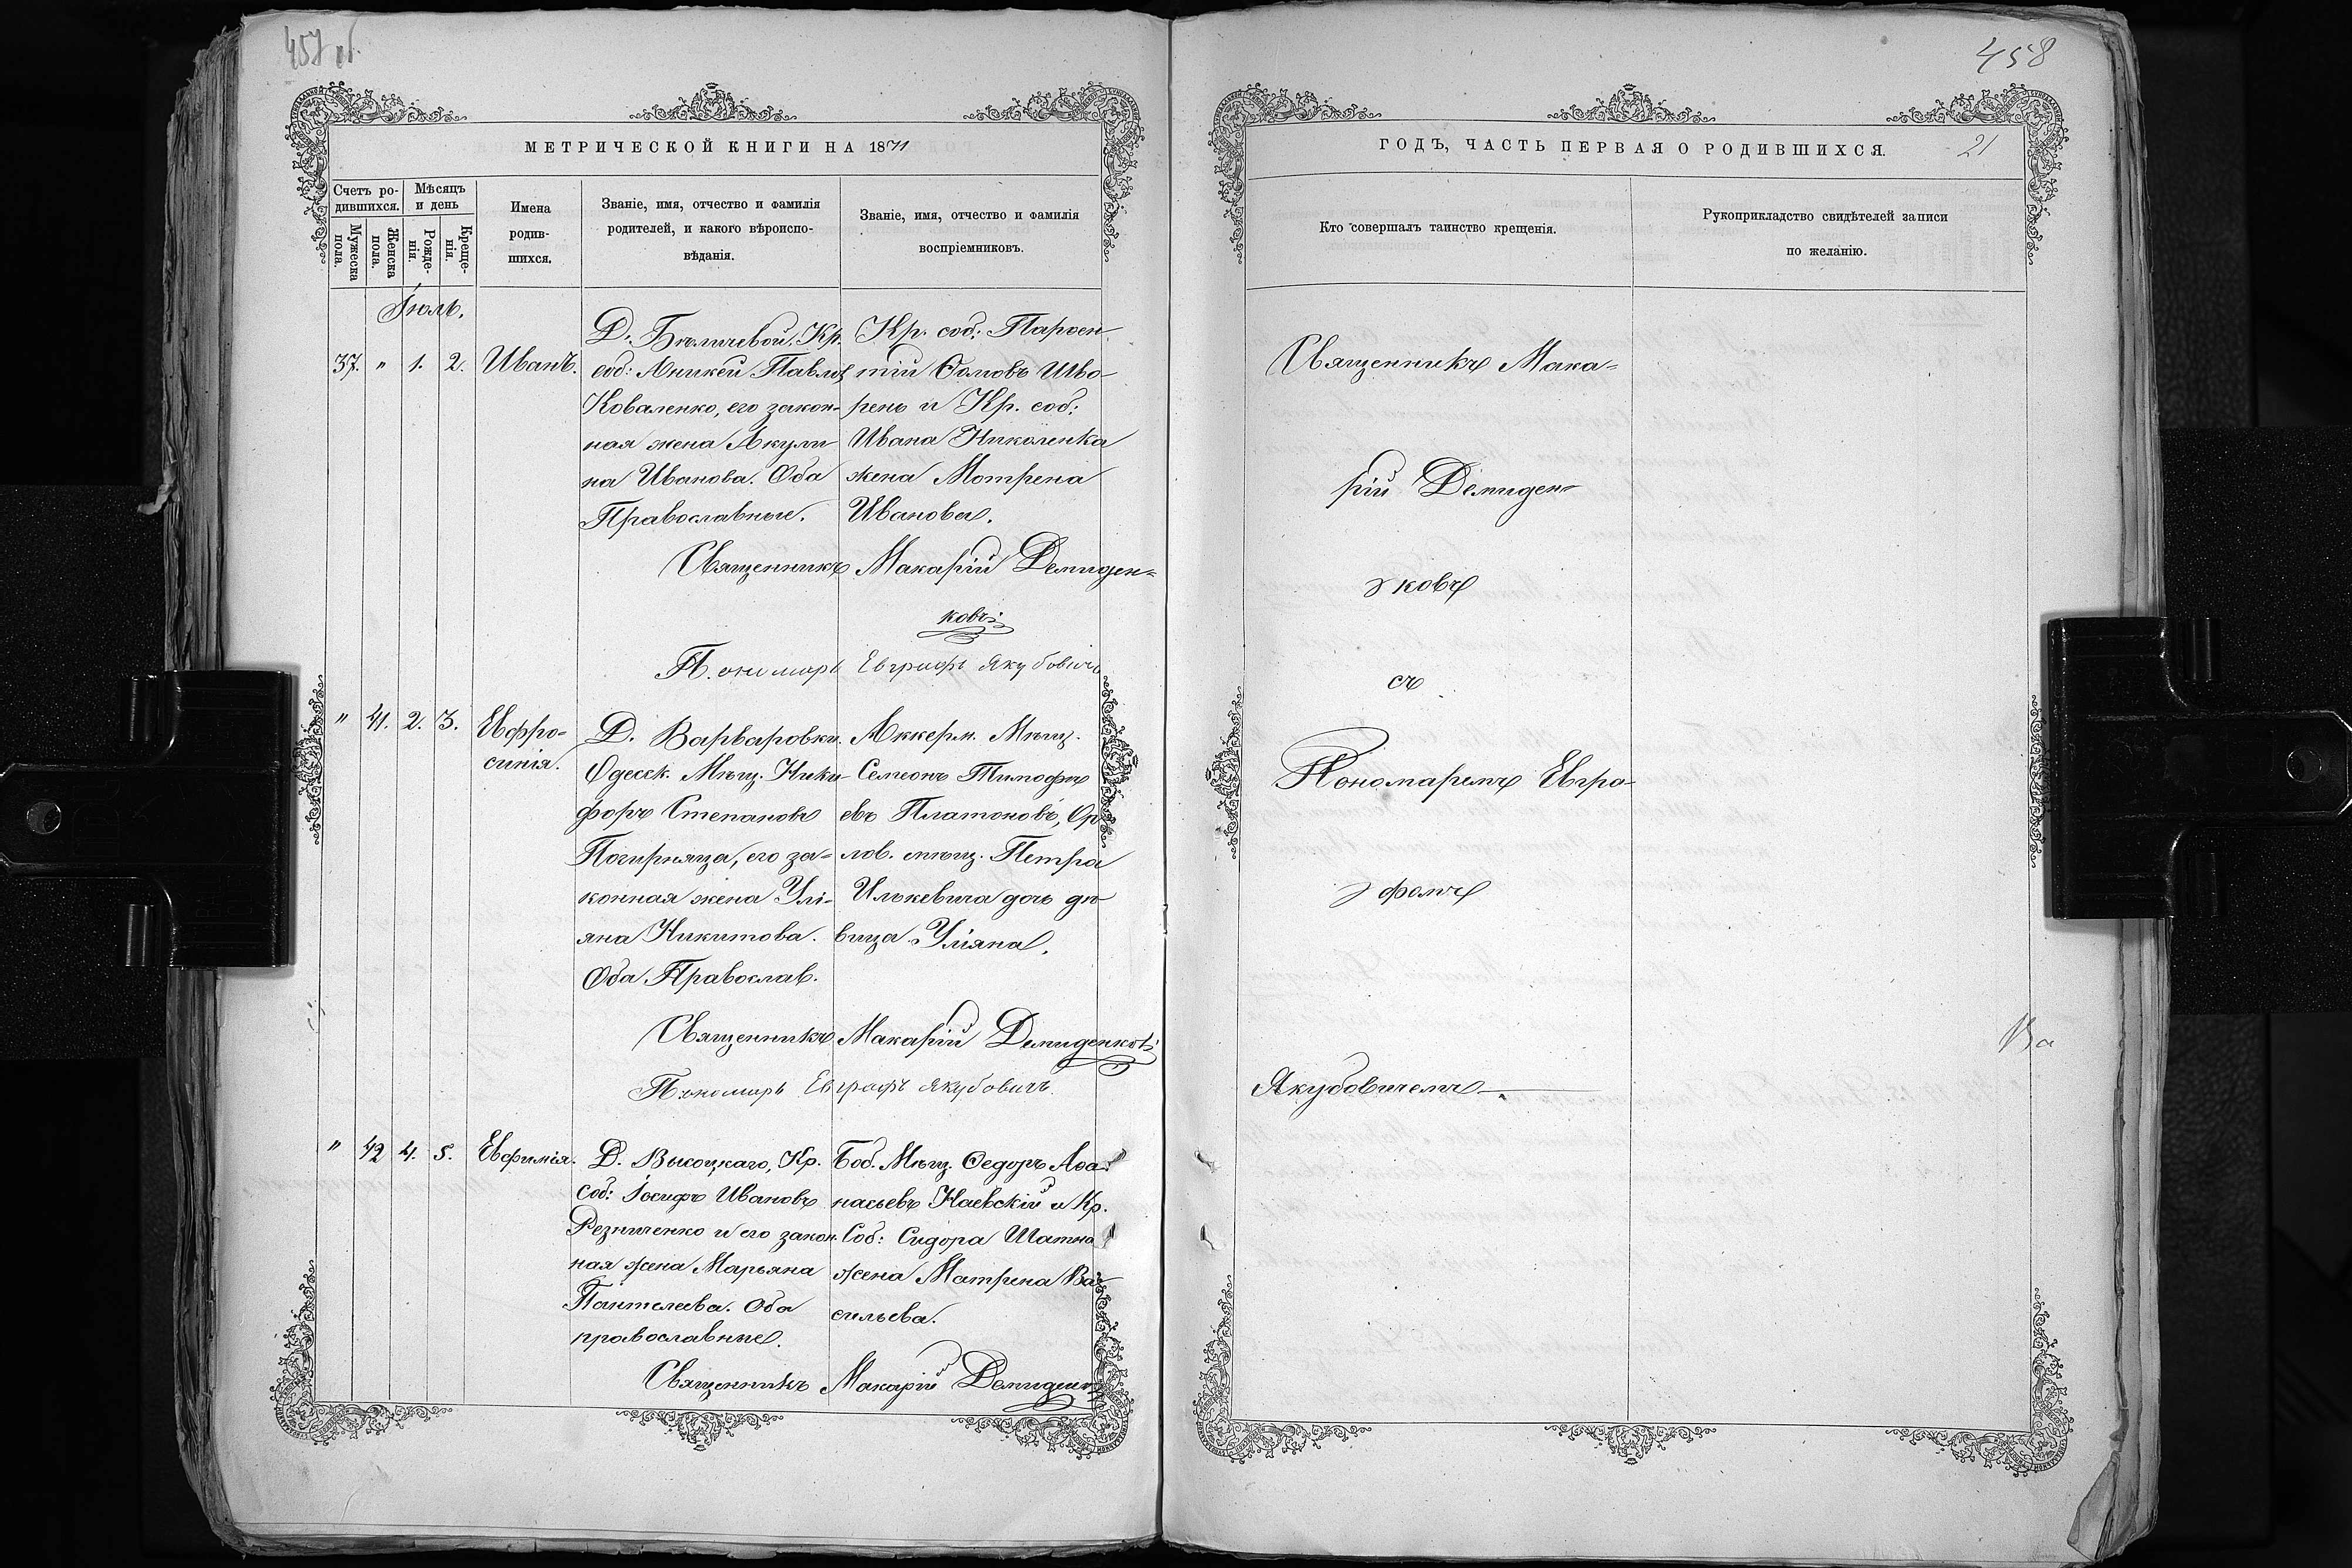 457 об.
МЕТРИЧЕСКОЙ КНИГИ НА 1871
Счетъ ро-
дившихся.
Мѣсяцъ
и день
Мужеска
пола.
Женска
пола.
Рожде-
нія.
Креще-
нія.
Имена
родив-
шихся.
Званіе, имя, отчество и фамилія
родителей, и какого вѣроиспо-
вѣданія.
Званіе, имя, отчество и фамилія
воспріемниковъ.
Іюль.
37. " 1. 2. Иванъ.
Д. Кр.
соб: Аникей Павловъ
Коваленко, его закон-
ная жена Акули-
на Иванова. Оба
Православные.
Кр. соб: Парѳен-
тій Ѳомовъ Шво-
рень и Кр. соб:
Ивана Николенка
жена Мотрена
Иванова.
Священникъ Макарій Демиден-
ковъ
Пономарь Евграфъ Якубовичъ
" 41. 2. 3. Евфро-
синія.
Д. Варваровки.
Одесск. Мѣщ. Ники-
форъ Степановъ
его за-
конная жена Улі-
яна Никитова.
Оба Православ.
Аккерм. Мѣщ.
Семеонъ Тимофѣ-
евъ Платоновъ, Ор-
лов. мѣщ. Петра
Илькевича дочь дѣ-
вица Уліяна.
Священникъ Макарій Демиденковъ
Пономарь Евграфъ Якубовичъ.
" 42 4. 5. Евфимія.
Д. Высоцкаго, Кр.
соб: Іосифъ Ивановъ
Резниченко и его закон-
ная жена Марьяна
Пантелеева. Оба
православные.
Боб. Мѣщ. Ѳедоръ Аѳа-
насьевъ Каевскій и Кр.
Соб: Сидора
жена Матрена Ва-
сильева.
Священникъ Макарій
458
ГОДЪ, ЧАСТЬ ПЕРВАЯ О РОДИВШИХСЯ.
21
Кто совершалъ таинство крещенія.
Рукоприкладство свидѣтелей записи
по желанію.
Священникъ Мака-
рій Демиден-
ковъ
съ
Пономаремъ Евгра-
фомъ
Якубовичемъ.
Ва